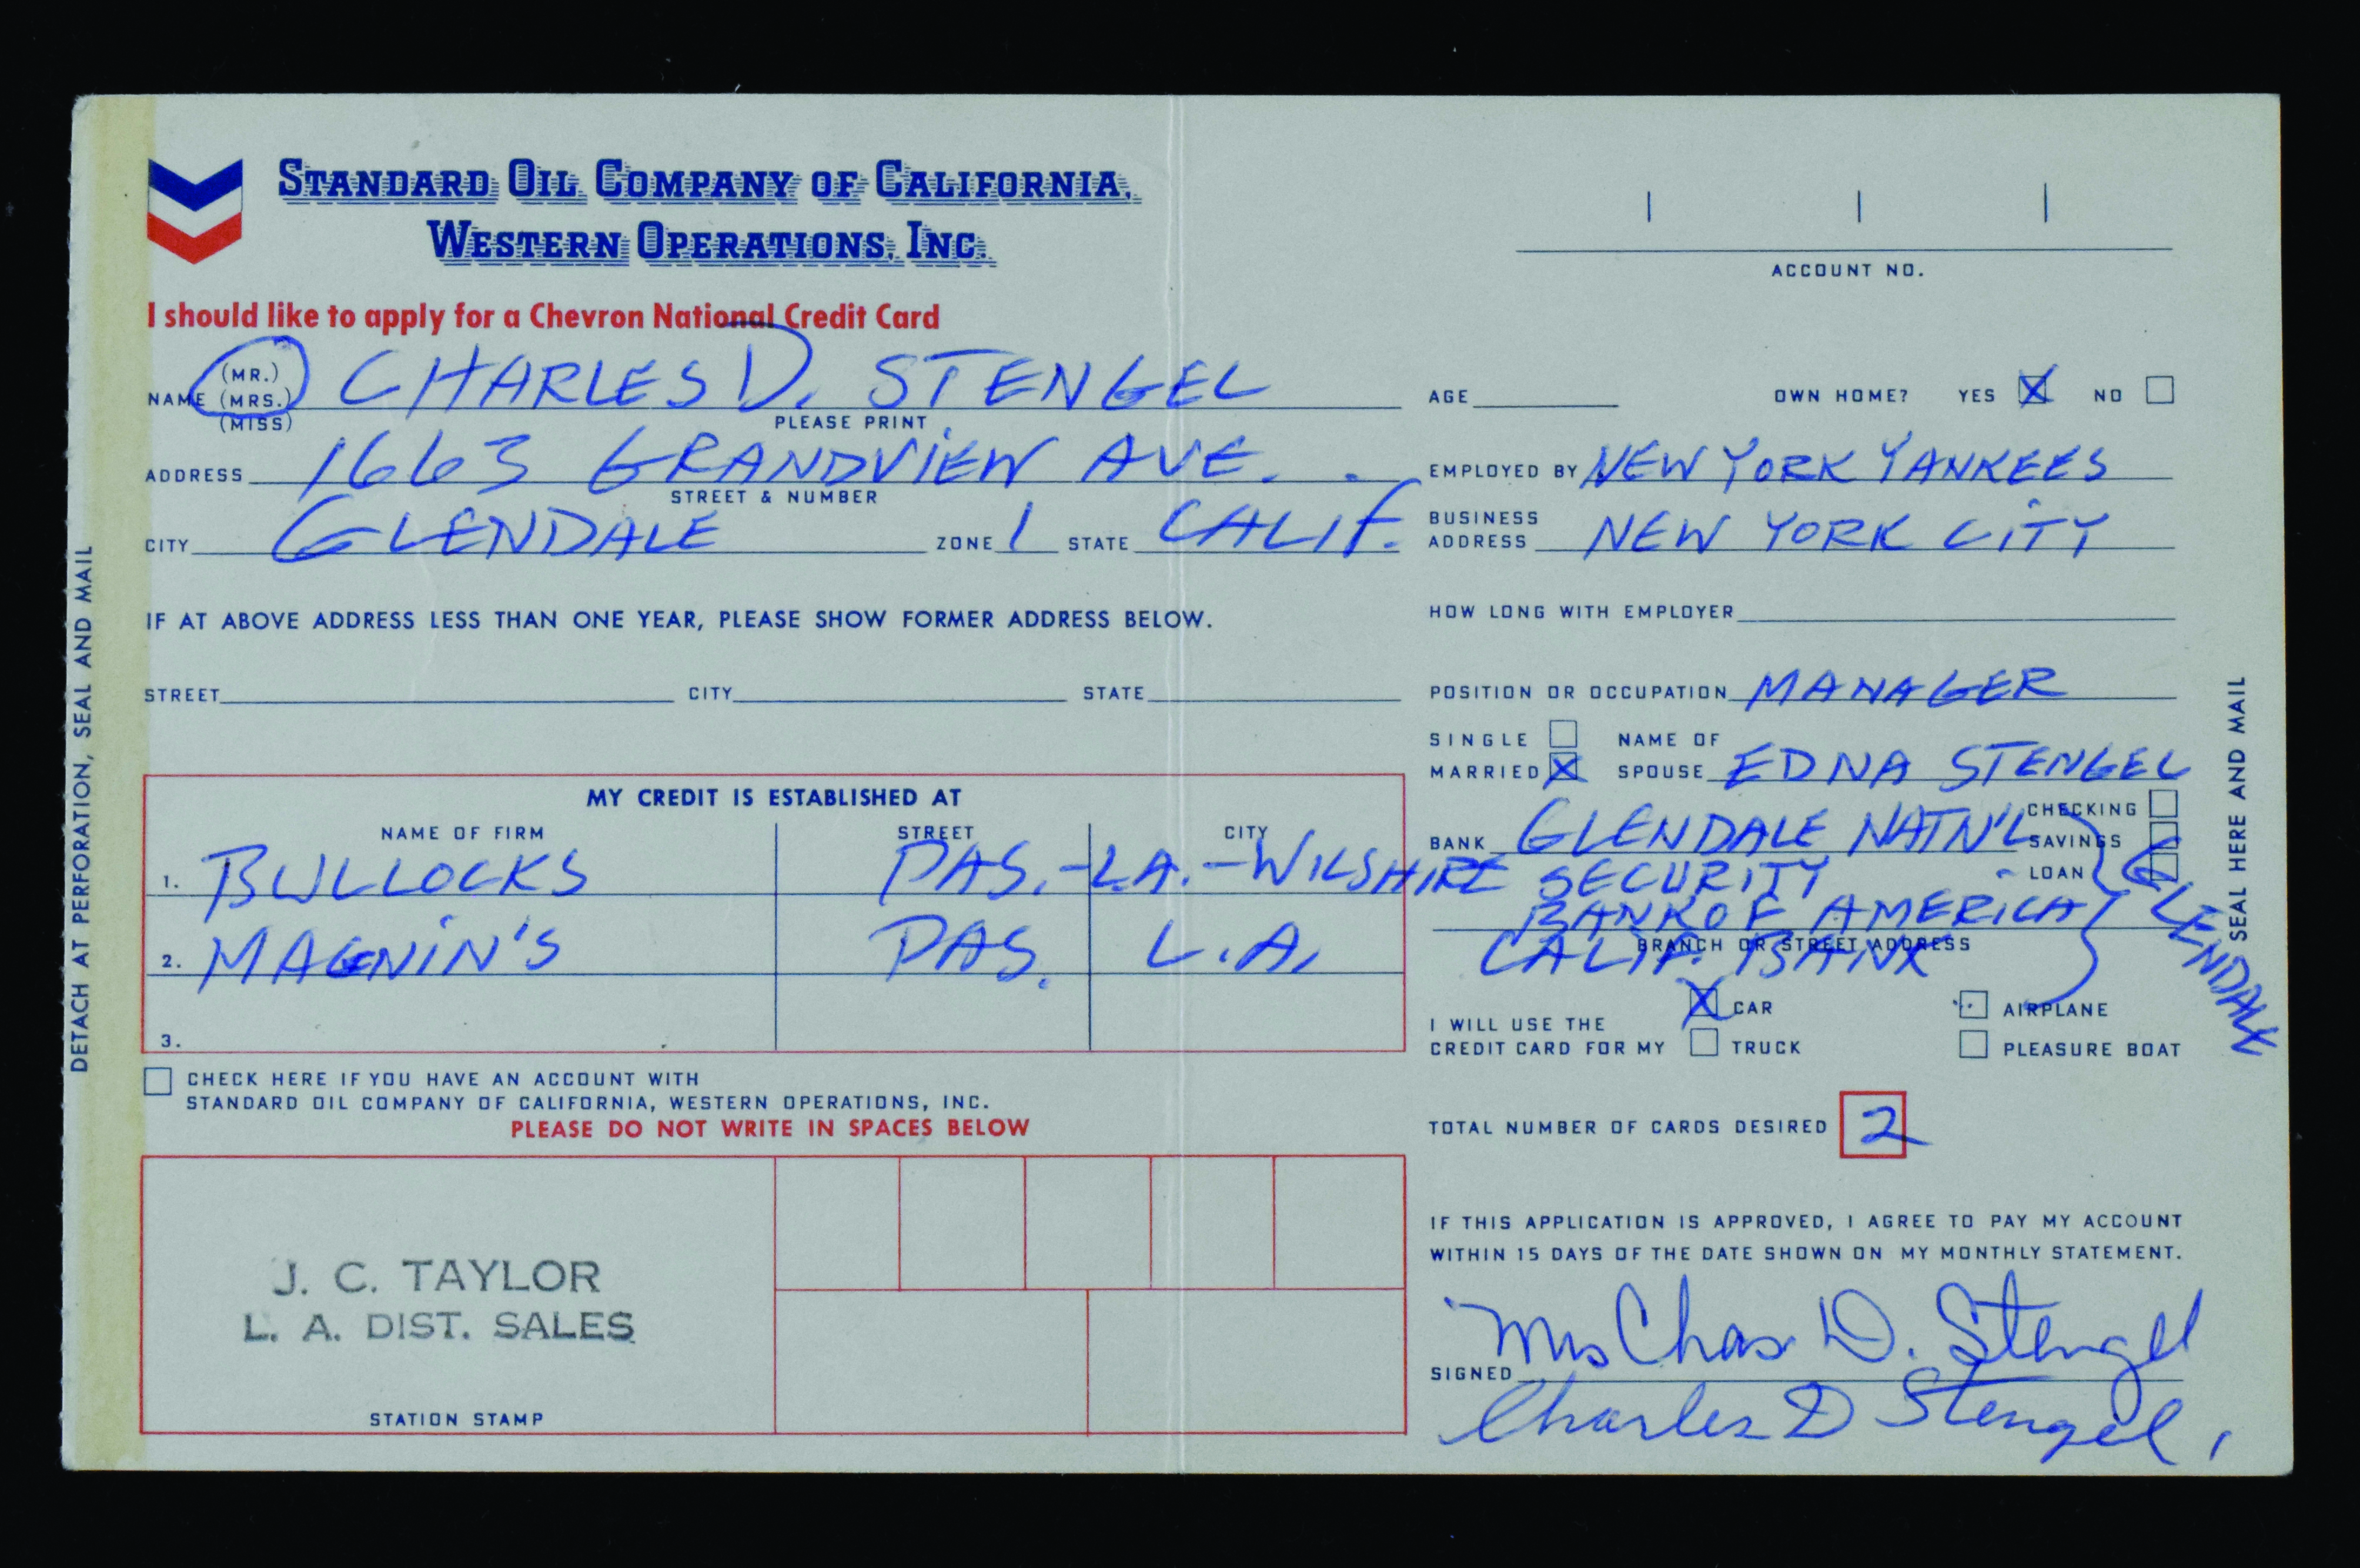 STANDARD OIL COMPANY OF CALIFORNIA,
WESTERN OPERATIONS, INC.
I should like to apply for a Chevron National Credit Card
ACCOUNT NO.
NAME (MR.) (MRS.) (MISS) CHARLES D. STENGEL
PLEASE PRINT
ADDRESS 1663 GRANDVIEW AVE.
STREET & NUMBER
CITY GLENDALE ZONE 1 STATE CALIF.
IF AT ABOVE ADDRESS LESS THAN ONE YEAR, PLEASE SHOW FORMER ADDRESS BELOW.
STREET CITY STATE
MY CREDIT IS ESTABLISHED AT
NAME OF FIRM STREET CITY
1. BULLOCKS PAS.-L.A.-WILSHIRE
2. MAGNIN'S PAS. L.A.
3.
CHECK HERE IF YOU HAVE AN ACCOUNT WITH
STANDARD OIL COMPANY OF CALIFORNIA, WESTERN OPERATIONS, INC.
PLEASE DO NOT WRITE IN SPACES BELOW
J. C. TAYLOR
L. A. DIST. SALES
STATION STAMP
AGE OWN HOME? YES X NO
EMPLOYED BY NEW YORK YANKEES
BUSINESS ADDRESS NEW YORK CITY
HOW LONG WITH EMPLOYER
POSITION OR OCCUPATION MANAGER
SINGLE
MARRIED X
NAME OF SPOUSE EDNA STENGEL
BANK GLENDALE NATN'L
SECURITY
BANK OF AMERICA
CALIF. BANK
GLENDALE
CHECKING
SAVINGS
LOAN
BRANCH OR STREET ADDRESS
I WILL USE THE
CREDIT CARD FOR MY
X CAR AIRPLANE
TRUCK PLEASURE BOAT
TOTAL NUMBER OF CARDS DESIRED 2
IF THIS APPLICATION IS APPROVED, I AGREE TO PAY MY ACCOUNT
WITHIN 15 DAYS OF THE DATE SHOWN ON MY MONTHLY STATEMENT.
SIGNED Mrs Chas D. Stengel
Charles D Stengel,
DETACH AT PERFORATION, SEAL AND MAIL
SEAL HERE AND MAIL